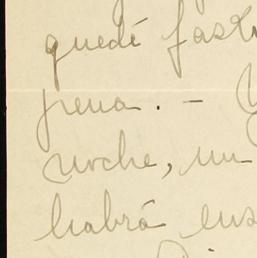 quedé fast
pena. —
noche, un
habrá ens